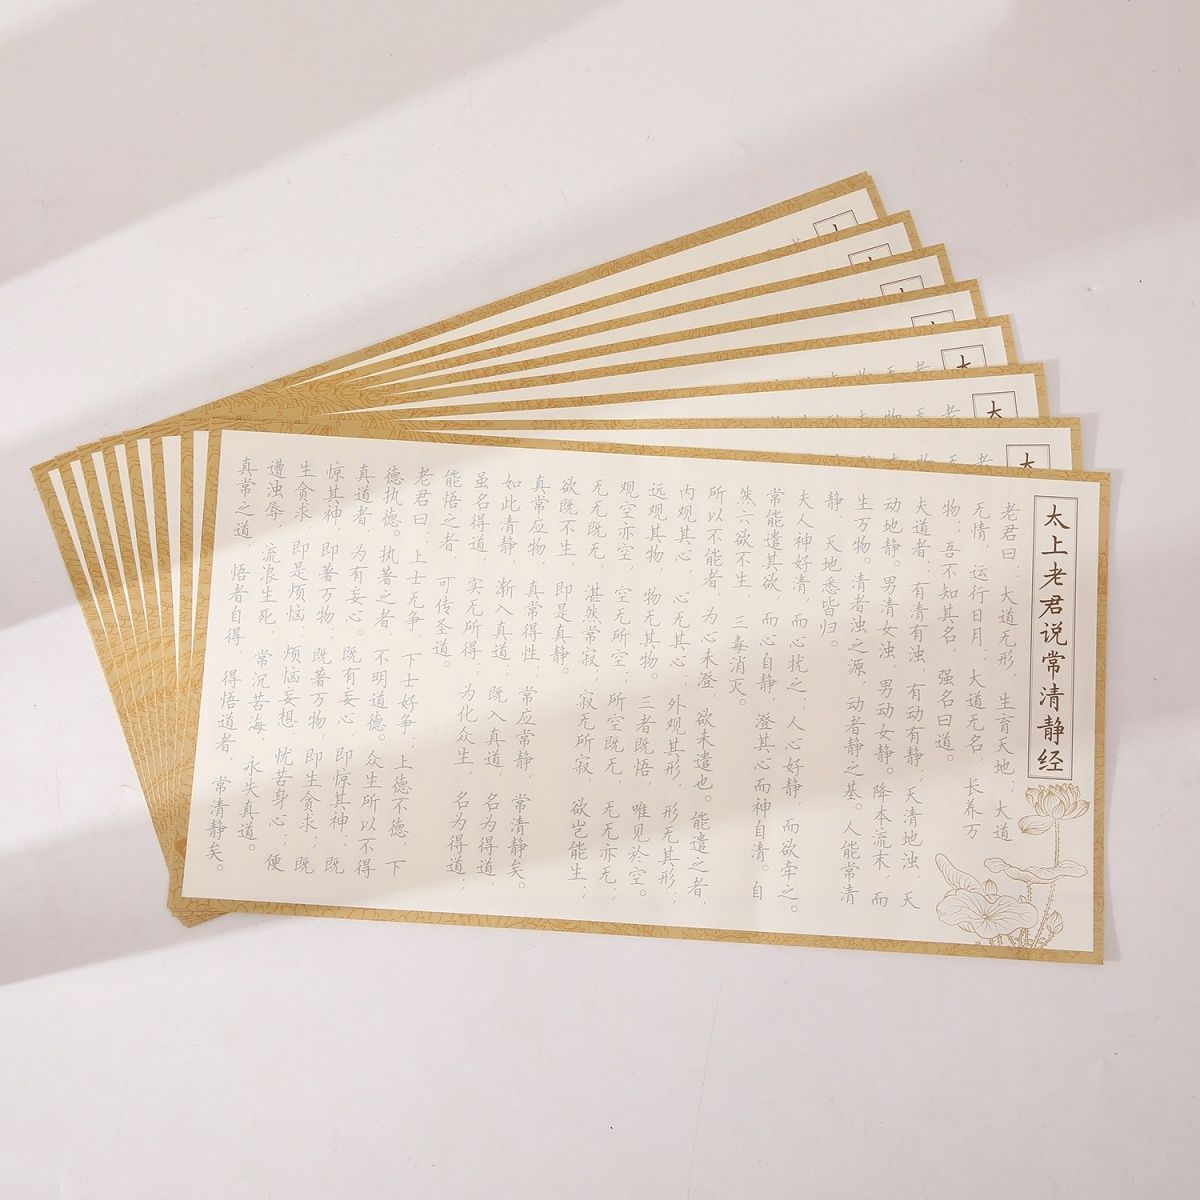 太上老君说常清静经
老君曰：大道无形，生育天地；大道
无情，运行日月，大道无名，长养万
物；吾不知其名，强名曰道。
夫道者：有清有浊，有动有静，天清地浊，天
动地静。男清女浊，男动女静。降本流末，而
生万物。清者浊之源，动者静之基。人能常清
静，天地悉皆归。
夫人神好清，而心扰之，人心好静，而欲牵之。
常能遣其欲，而心自静，澄其心而神自清。自
然六欲不生，三毒消灭。
所以不能者，为心未澄，欲未遣也。能遣之者，
内观其心，心无其心，外观其形，形无其形，
远观其物，物无其物。三者既悟，唯见於空。
观空亦空，空无所空，所空既无，无无亦无；
无无既无，湛然常寂，寂无所寂，欲岂能生；
欲既不生，即是真静。
真常应物，真常得性，常应常静，常清静矣。
如此清静，渐入真道，既入真道，名为得道，
虽名得道，实无所得，为化众生，名为得道；
能悟之者，可传圣道。
老君曰：上士无争，下士好争，上德不德，下
德执德。执著之者，不明道德。众生所以不得
真道者，为有妄心。既有妄心，即惊其神，既
惊其神，即著万物，既著万物，即生贪求，既
生贪求，即是烦恼，烦恼妄想，忧苦身心；便
遭浊辱，流浪生死，常沉苦海，永失真道。
真常之道，悟者自得，得悟道者，常清静矣。
太
太
太